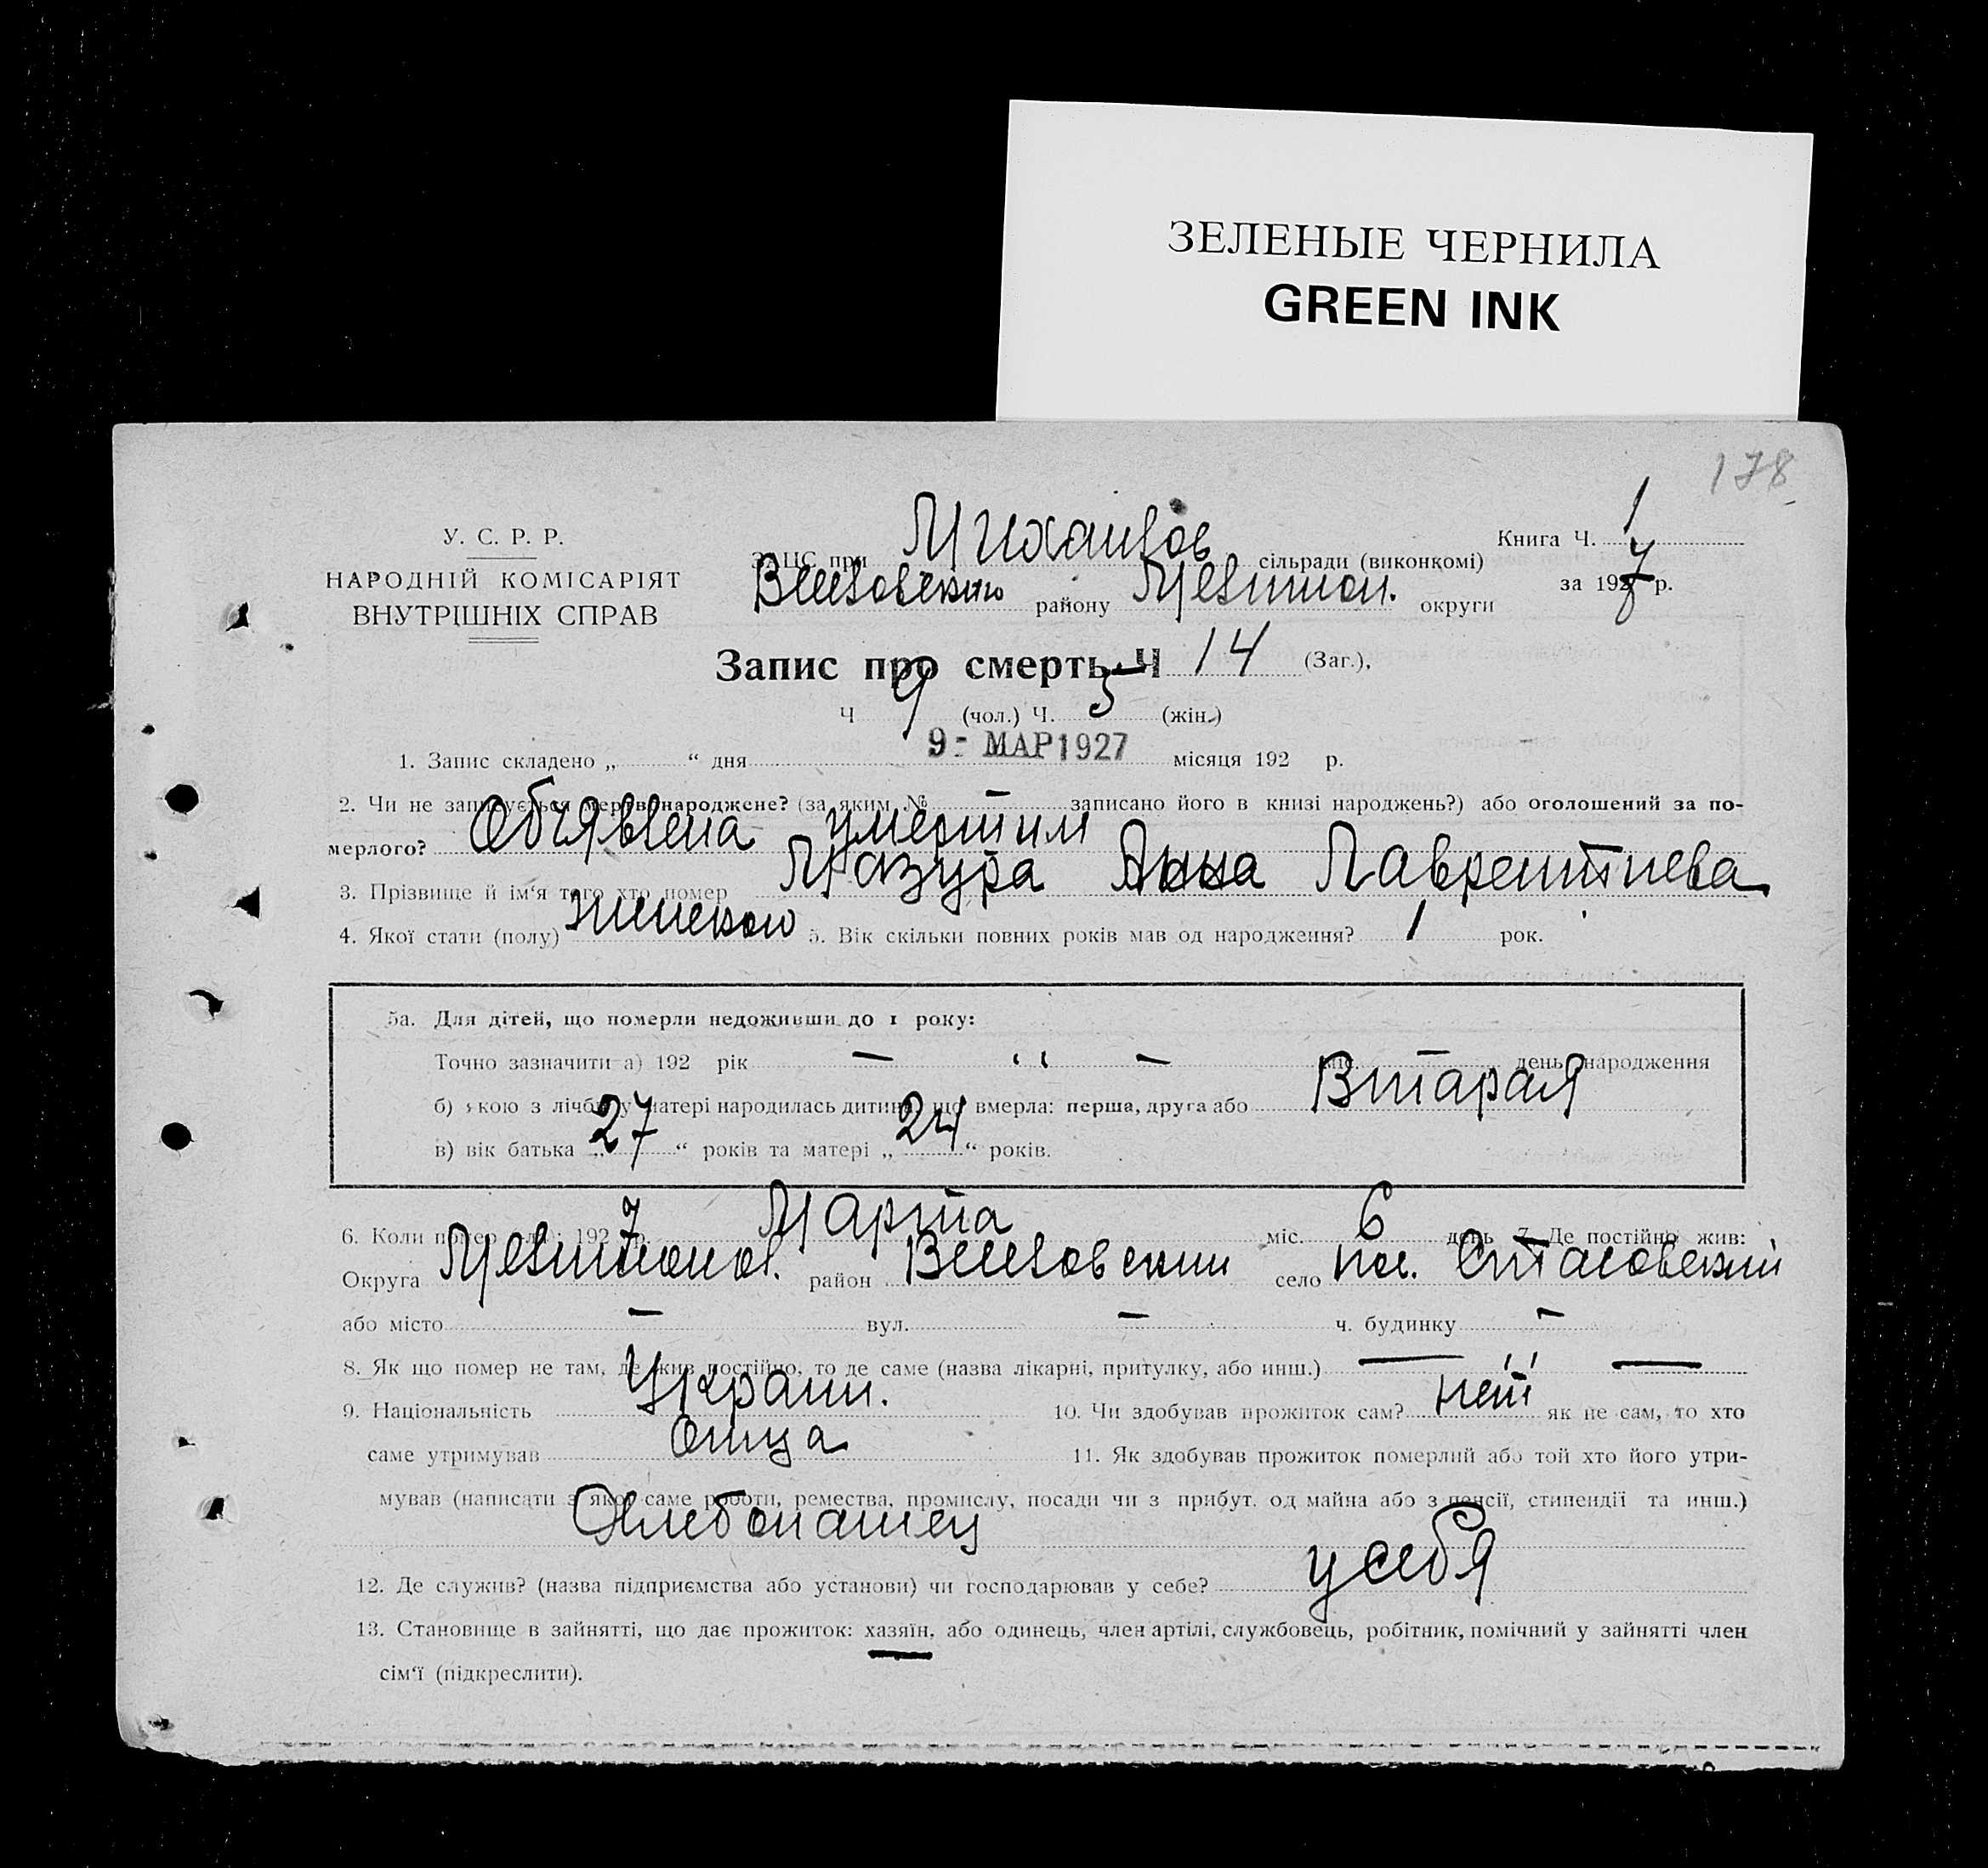 ЗЕЛЕНЫЕ ЧЕРНИЛА
GREEN INK
178
У. С. Р. Р.
НАРОДНІЙ КОМІСАРІЯТ
ВНУТРІШНІХ СПРАВ
ЗАЦС при Михайлов сільради (виконкомі)
Веселовского району Мелитоп. округи
Книга Ч. 1
за 1927 р.
Запис про смерть Ч 14 (Заг.),
Ч 9 (чол.) Ч. 5 (жін.)
1. Запис складено „ “ дня 9 - МАР 1927 місяця 192 р.
2. Чи не записується мертвонароджене? (за яким № — записано його в книзі народжень?) або оголошений за по-
мерлого? Объявлена умершим
3. Прізвище й ім'я того хто помер Мазура Анна Лаврентиева
4. Якої стати (полу) женского 5. Вік скільки повних років мав од народження? 1 рок.
5а. Для дітей, що померли недоживши до 1 року:
Точно зазначити а) 192 рік — “ — міс. — день народження
б) якою з лічби у матері народилась дитина, що вмерла: перша, друга або Вторая
в) вік батька „27“ років та матері „24“ років.
6. Коли помер(ла): 1927 р. Марта міс. 6 день 7. Де постійно жив:
Округа район Веселовский село пос. Стасовский
або місто — вул. — ч. будинку —
8. Як що помер не там, де жив постійно, то де саме (назва лікарні, притулку, або инш.) — “ —
9. Національність Украин. 10. Чи здобував прожиток сам? нет як не сам, то хто
саме утримував отца 11. Як здобував прожиток померлий або той хто його утри-
мував (написати з якої саме роботи, ремества, промислу, посади чи з прибут. од майна або з пенсії, стипендії та инш.)
Хлебопашец
12. Де служив? (назва підприємства або установи) чи господарював у себе? у себя
13. Становище в зайнятті, що дає прожиток: хазяїн, або одинець, член артілі, службовець, робітник, помічний у зайнятті член
сім'ї (підкреслити).